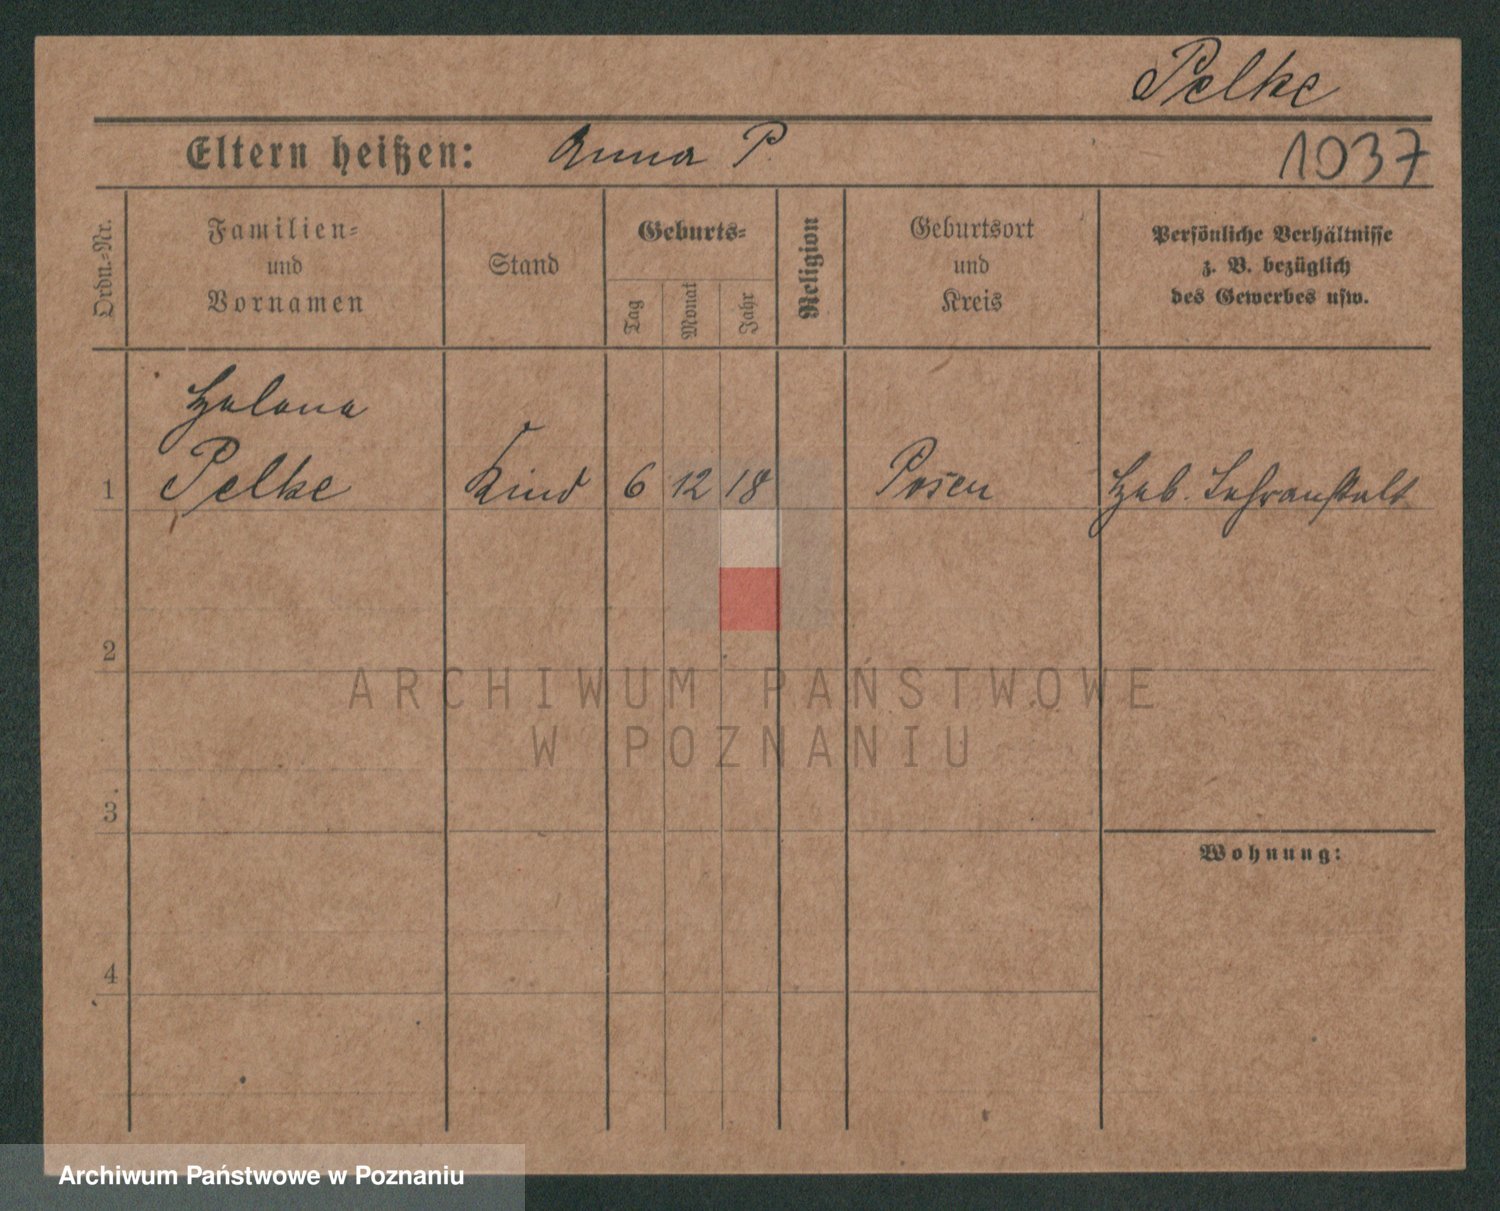 Pelke
Eltern heißen: Anna P.
1037
Ordn.-Nr.
Familien-
und
Vornamen
Stand
Geburts-
Tag
Monat
Jahr
Religion
Geburtsort
und
Kreis
Persönliche Verhältnisse
z. B. bezüglich
des Gewerbes usw.
Helena
1 Pelke Kind 6 12 18 Posen Heb. Lehranstalt
2
ARCHIWUM PAŃSTWOWE
W POZNANIU
3
Wohnung:
4
Archiwum Państwowe w Poznaniu